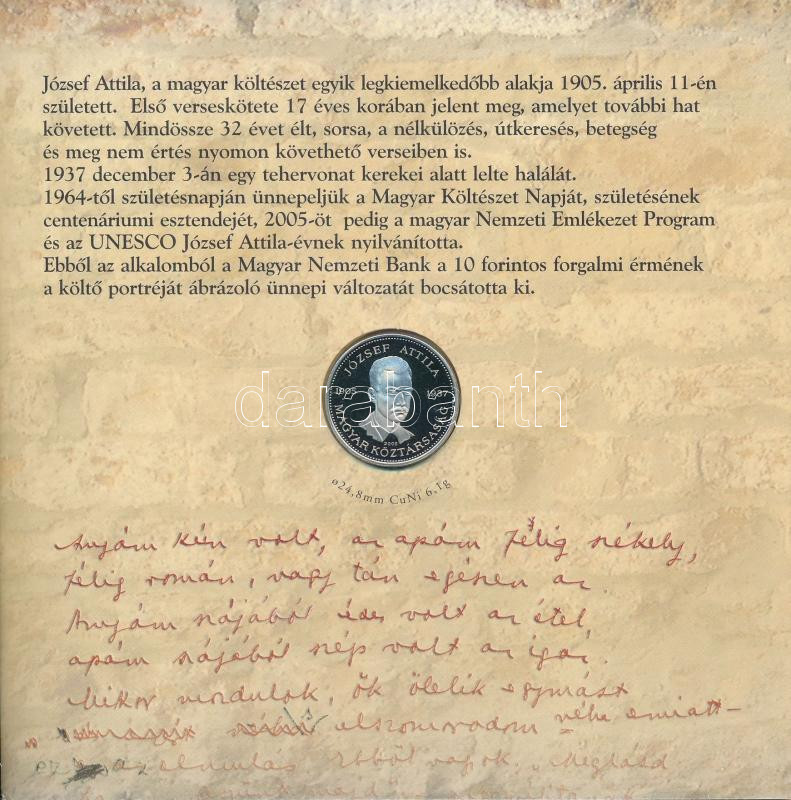 József Attila, a magyar költészet egyik legkiemelkedőbb alakja 1905. április 11-én
született.  Első verseskötete 17 éves korában jelent meg, amelyet további hat
követett. Mindössze 32 évet élt, sorsa, a nélkülözés, útkeresés, betegség
és meg nem értés nyomon követhető verseiben is.
1937 december 3-án egy tehervonat kerekei alatt lelte halálát.
1964-től születésnapján ünnepeljük a Magyar Költészet Napját, születésének
centenáriumi esztendejét, 2005-öt  pedig a magyar Nemzeti Emlékezet Program
és az UNESCO József Attila-évnek nyilvánította.
Ebből az alkalomból a Magyar Nemzeti Bank a 10 forintos forgalmi érmének
a költő portréját ábrázoló ünnepi változatát bocsátotta ki.
JÓZSEF ATTILA
1905 1937
MAGYAR KÖZTÁRSASÁG
2005
darabanth
ø24,8mm CuNi 6,1g
Anyám kún volt, az apám félig székely,
félig román, vagy tán egészen az.
Anyám szájából édes volt az étel,
apám szájából szép volt az igaz.
Mikor mozdulok, ők ölelik egymást
elszomorodom néha emiatt –
ez az elmulás. Ebből vagyok. „Meglásd